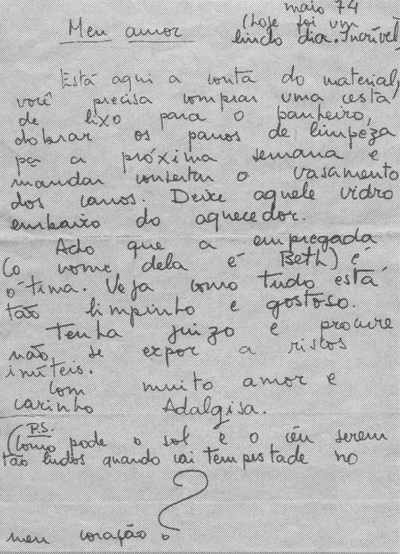 maio 74
Meu amor
(hoje foi um
lindo dia. Incrível)
Está aqui a conta do material,
você precisa comprar uma cesta
de lixo para o banheiro,
dobrar os panos de limpeza
pa a próxima semana e
mandar consertar o vasamento
dos canos. Deixe aquele vidro
embaixo do aquecedor.
Acho que a empregada
(o nome dela é Beth) é
ótima. Veja como tudo está
tão limpinho e gostoso.
Tenha juizo e procure
não se expor a riscos
inúteis.
Com muito amor e
carinho Adalgisa.
P.S.
(Como pode o sol e o céu serem
tão lindos quando cai tempestade no
meu coração?